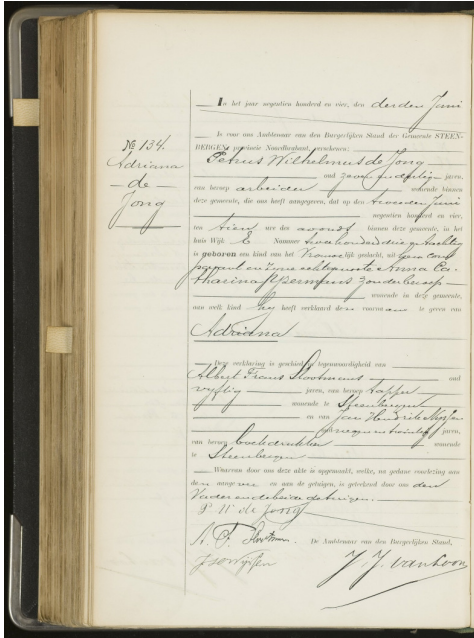 In het jaar negentien honderd en vier, den derden Juni
is voor ons Ambtenaar van den Burgerlijken Stand der Gemeente STEEN-
BERGEN, provincie Noordbrabant, verschenen:
Petrus Wilhelmus de Jong
oud zeven en dertig jaren,
van beroep arbeider wonende binnen
deze gemeente, die ons heeft aangegeven, dat op den tweeden Juni
negentien honderd en vier,
ten tien ure des avonds binnen deze gemeente, in het
huis Wijk E Nummer tweehonderd drie en tachtig
is geboren een kind van het Vrouwelijk geslacht, uit
en zijne echtgenoote Anna Ca-
tharina zonder beroep
wonende in deze gemeente,
aan welk kind hij heeft verklaard den voornaam te geven van
Adriana
Deze verklaring is geschied in tegenwoordigheid van
Albert Frans Slootmans oud
vijftig jaren, van beroep tapper
wonende te Steenbergen
en van Jan Hendrik
oud negen en twintig jaren,
van beroep boekdrukker wonende
te Steenbergen
Waarvan door ons deze akte is opgemaakt, welke, na gedane voorlezing aan
den aangever en aan de getuigen, is geteekend door ons den
Vader en de beide getuigen.
P W de Jong
A. F. Slootmans
De Ambtenaar van den Burgerlijken Stand,
J. J. van Loon
№ 134.
Adriana
de
Jong